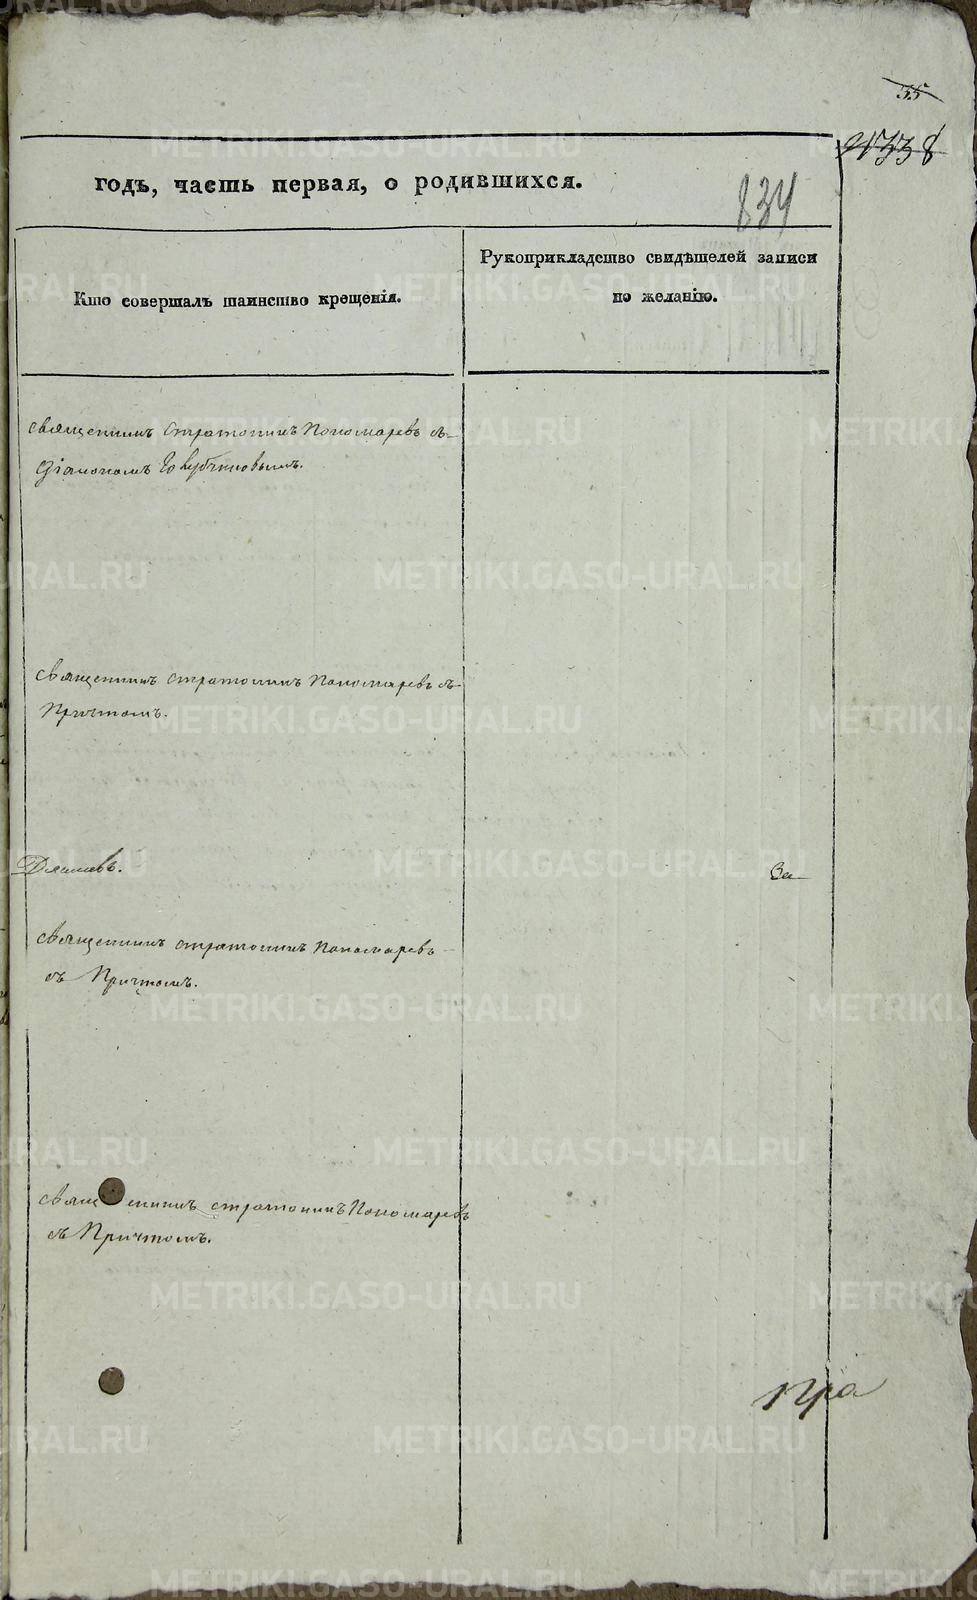 55
21338
834
годъ, часть первая, о родившихся.
Кто совершалъ таинство крещенія.
Рукоприкладство свидѣтелей записи
по желанію.
священникъ стратоникъ Пономаревъ съ
Діакономъ
священникъ стратоникъ Пономаревъ съ
Причтомъ.
За
священникъ стратоникъ Пономаревъ
съ Причтомъ.
священникъ стратоникъ Пономаревъ
съ Причтомъ.
METRIKI.GASO-URAL.RU